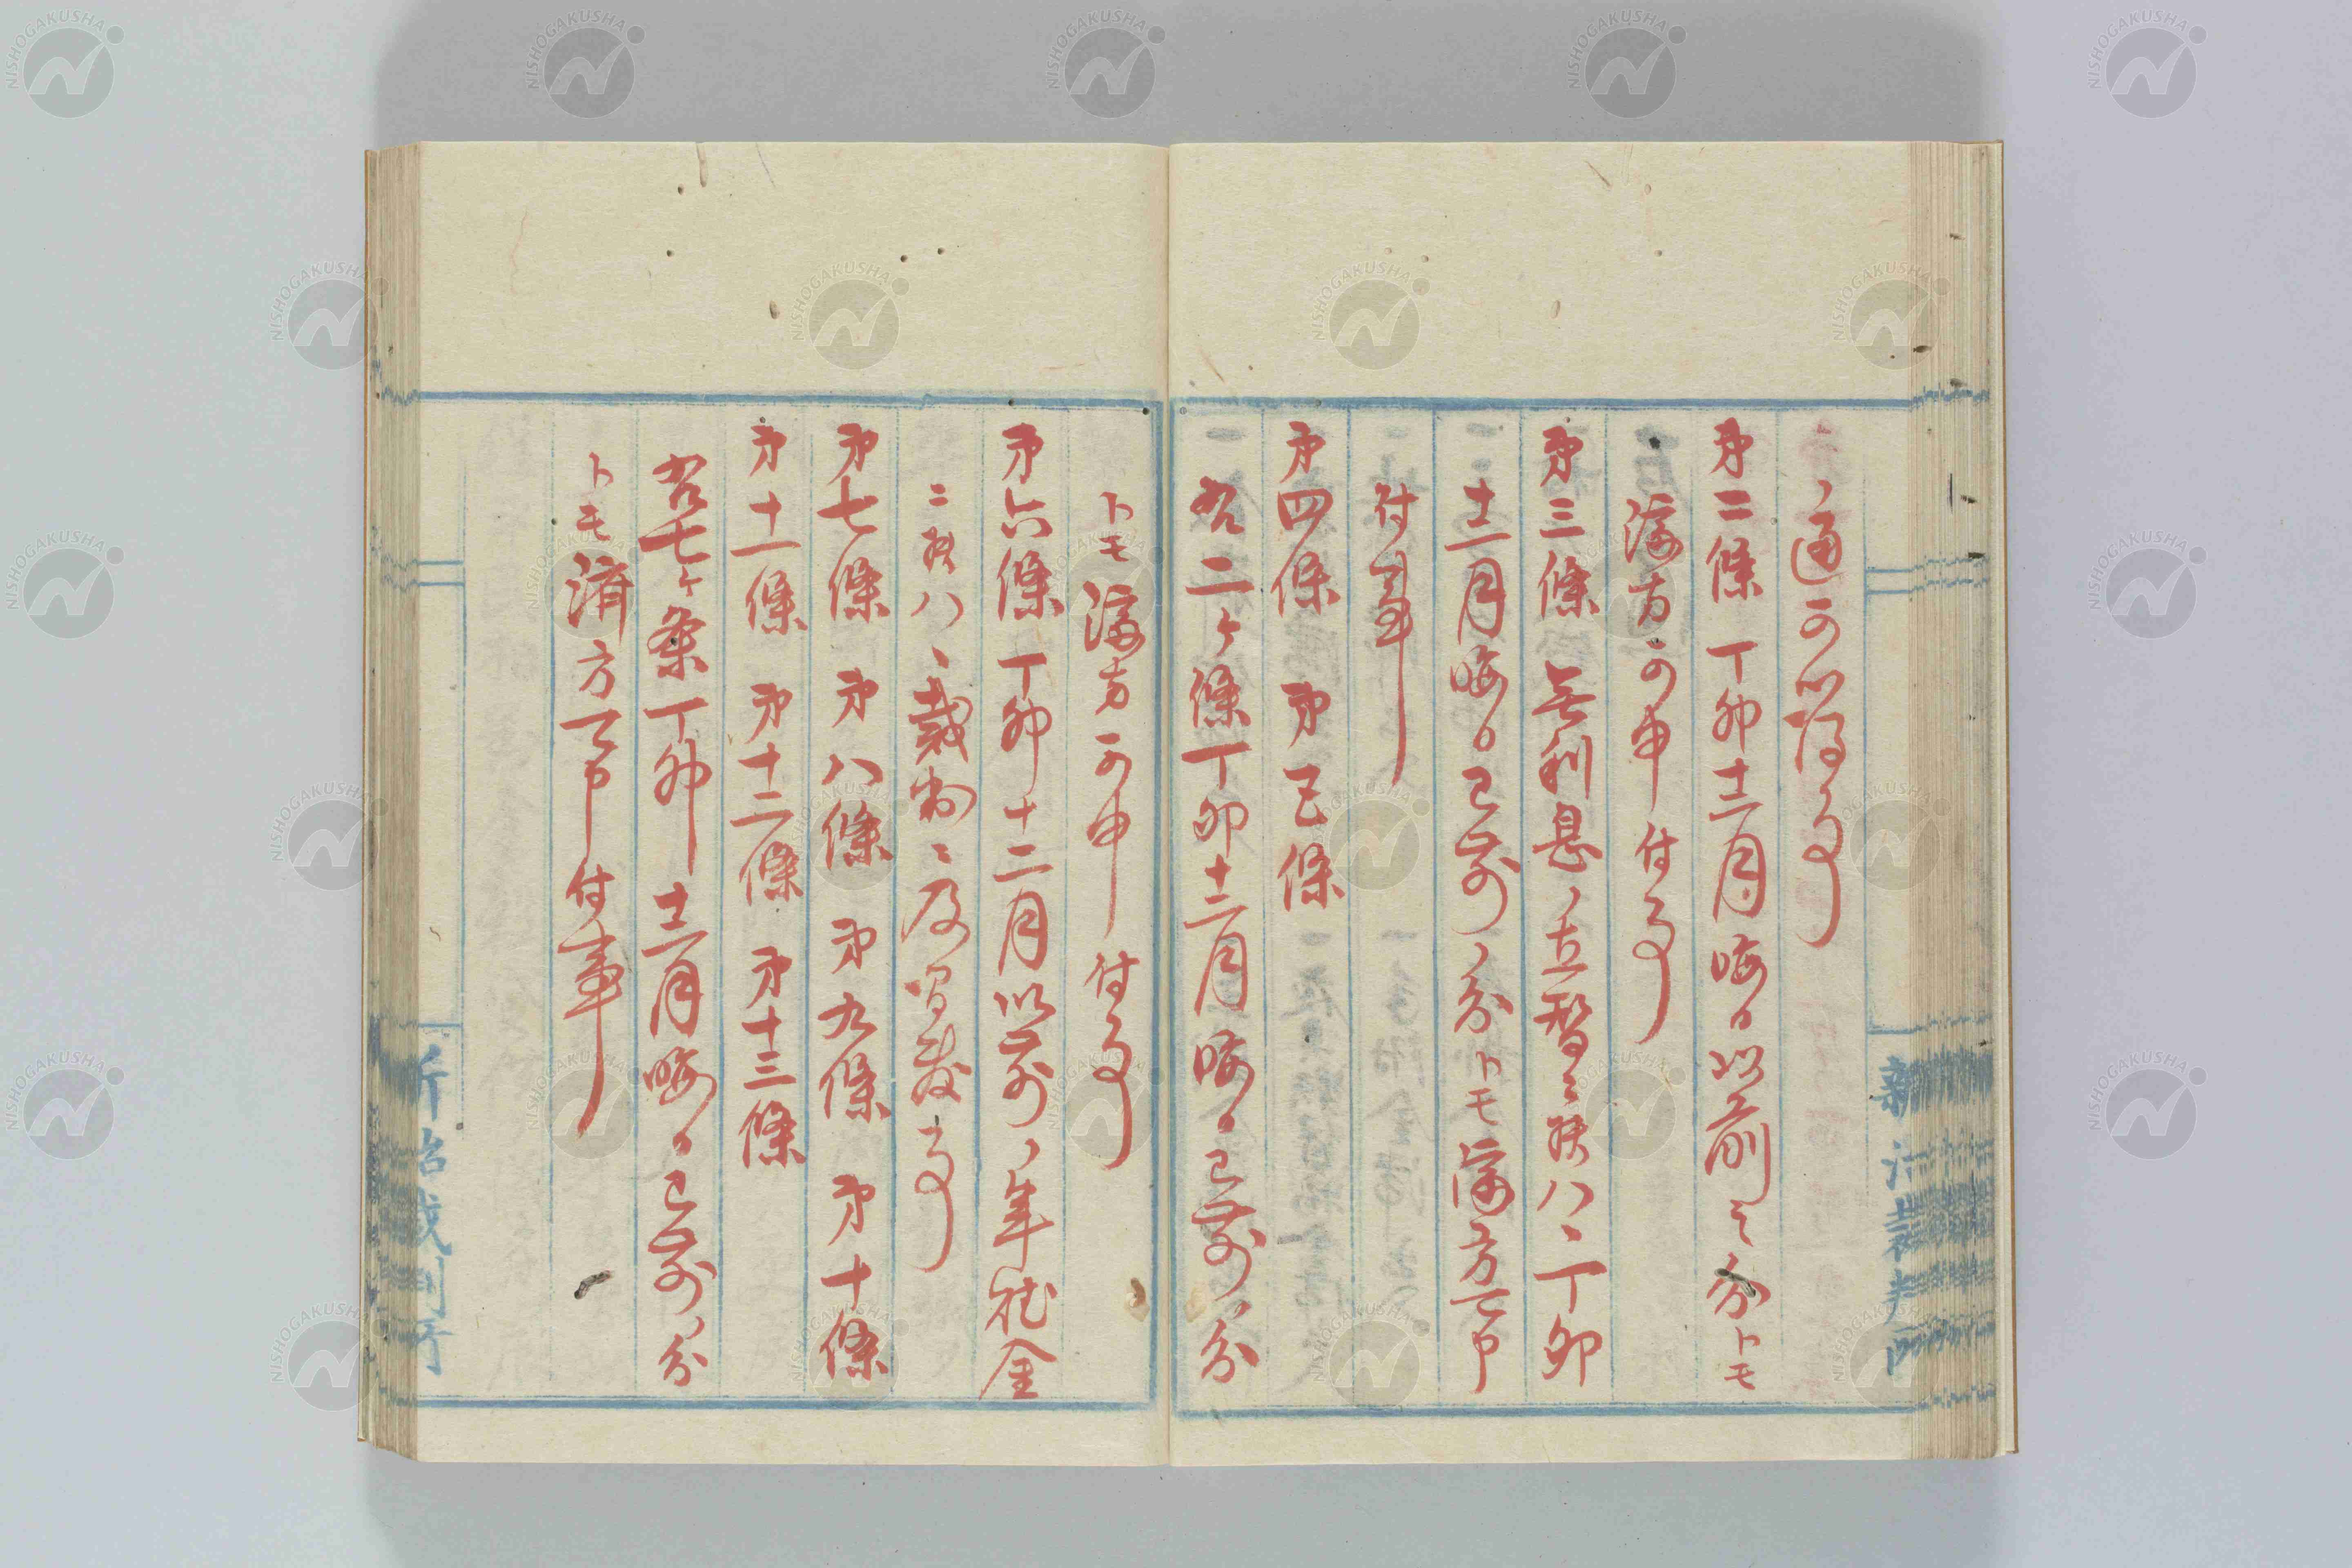 ノ通可心得事
第二條 丁卯十二月晦日以前之分トモ
済方可申付事
第三條 無利息ノ立替ニ候ハヽ丁卯
十二月晦日已前ノ分トモ済方可申
付事
第四條 第五條
右二ケ條丁卯十二月晦日已前ノ分
トモ済方可申付事
第六條 丁卯十二月以前ノ年賦金
ニ候ハヽ裁判ニ不及
第七條 第八條 第九條 第十條
第十一條 第十二條 第十三條
右七ケ条丁卯十二月晦日已前ノ分
トモ済方可申付事
新治裁判所
NISHOGAKUSHA